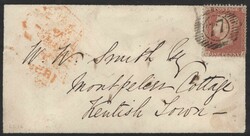 W. W. Smith Esq
Montpelier Cottage
Kentish Town